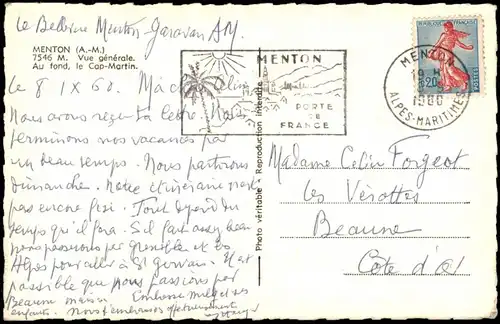 Le Bellevue Menton Garavan AM
MENTON (A.-M.)
7546 M. Vue générale.
Au fond, le Cap-Martin.
Le 8 IX 60. Ma chère
Nous avons reçu ta lettre. Nous
terminons nos vacances par
un beau temps. Nous partirons
dimanche. Notre itinéraire n'est
pas encore fixé. Tout dépend du
temps qu'il fera. S'il fait assez beau
nous passerons par Grenoble et les
Alpes pour aller à St Gervais. Il est
possible que nous passions par
Beaune Embrasse
enfants. Nous t'embrassons affectueusement
Photo véritable - Reproduction interdite
MENTON
PORTE
DE
FRANCE
REPUBLIQUE FRANÇAISE
0,20
POSTES
MENTON
19 H
1960
ALPES-MARITIMES
Madame Colin Forgeot
les Vérottes
Beaune
Côte d'Or